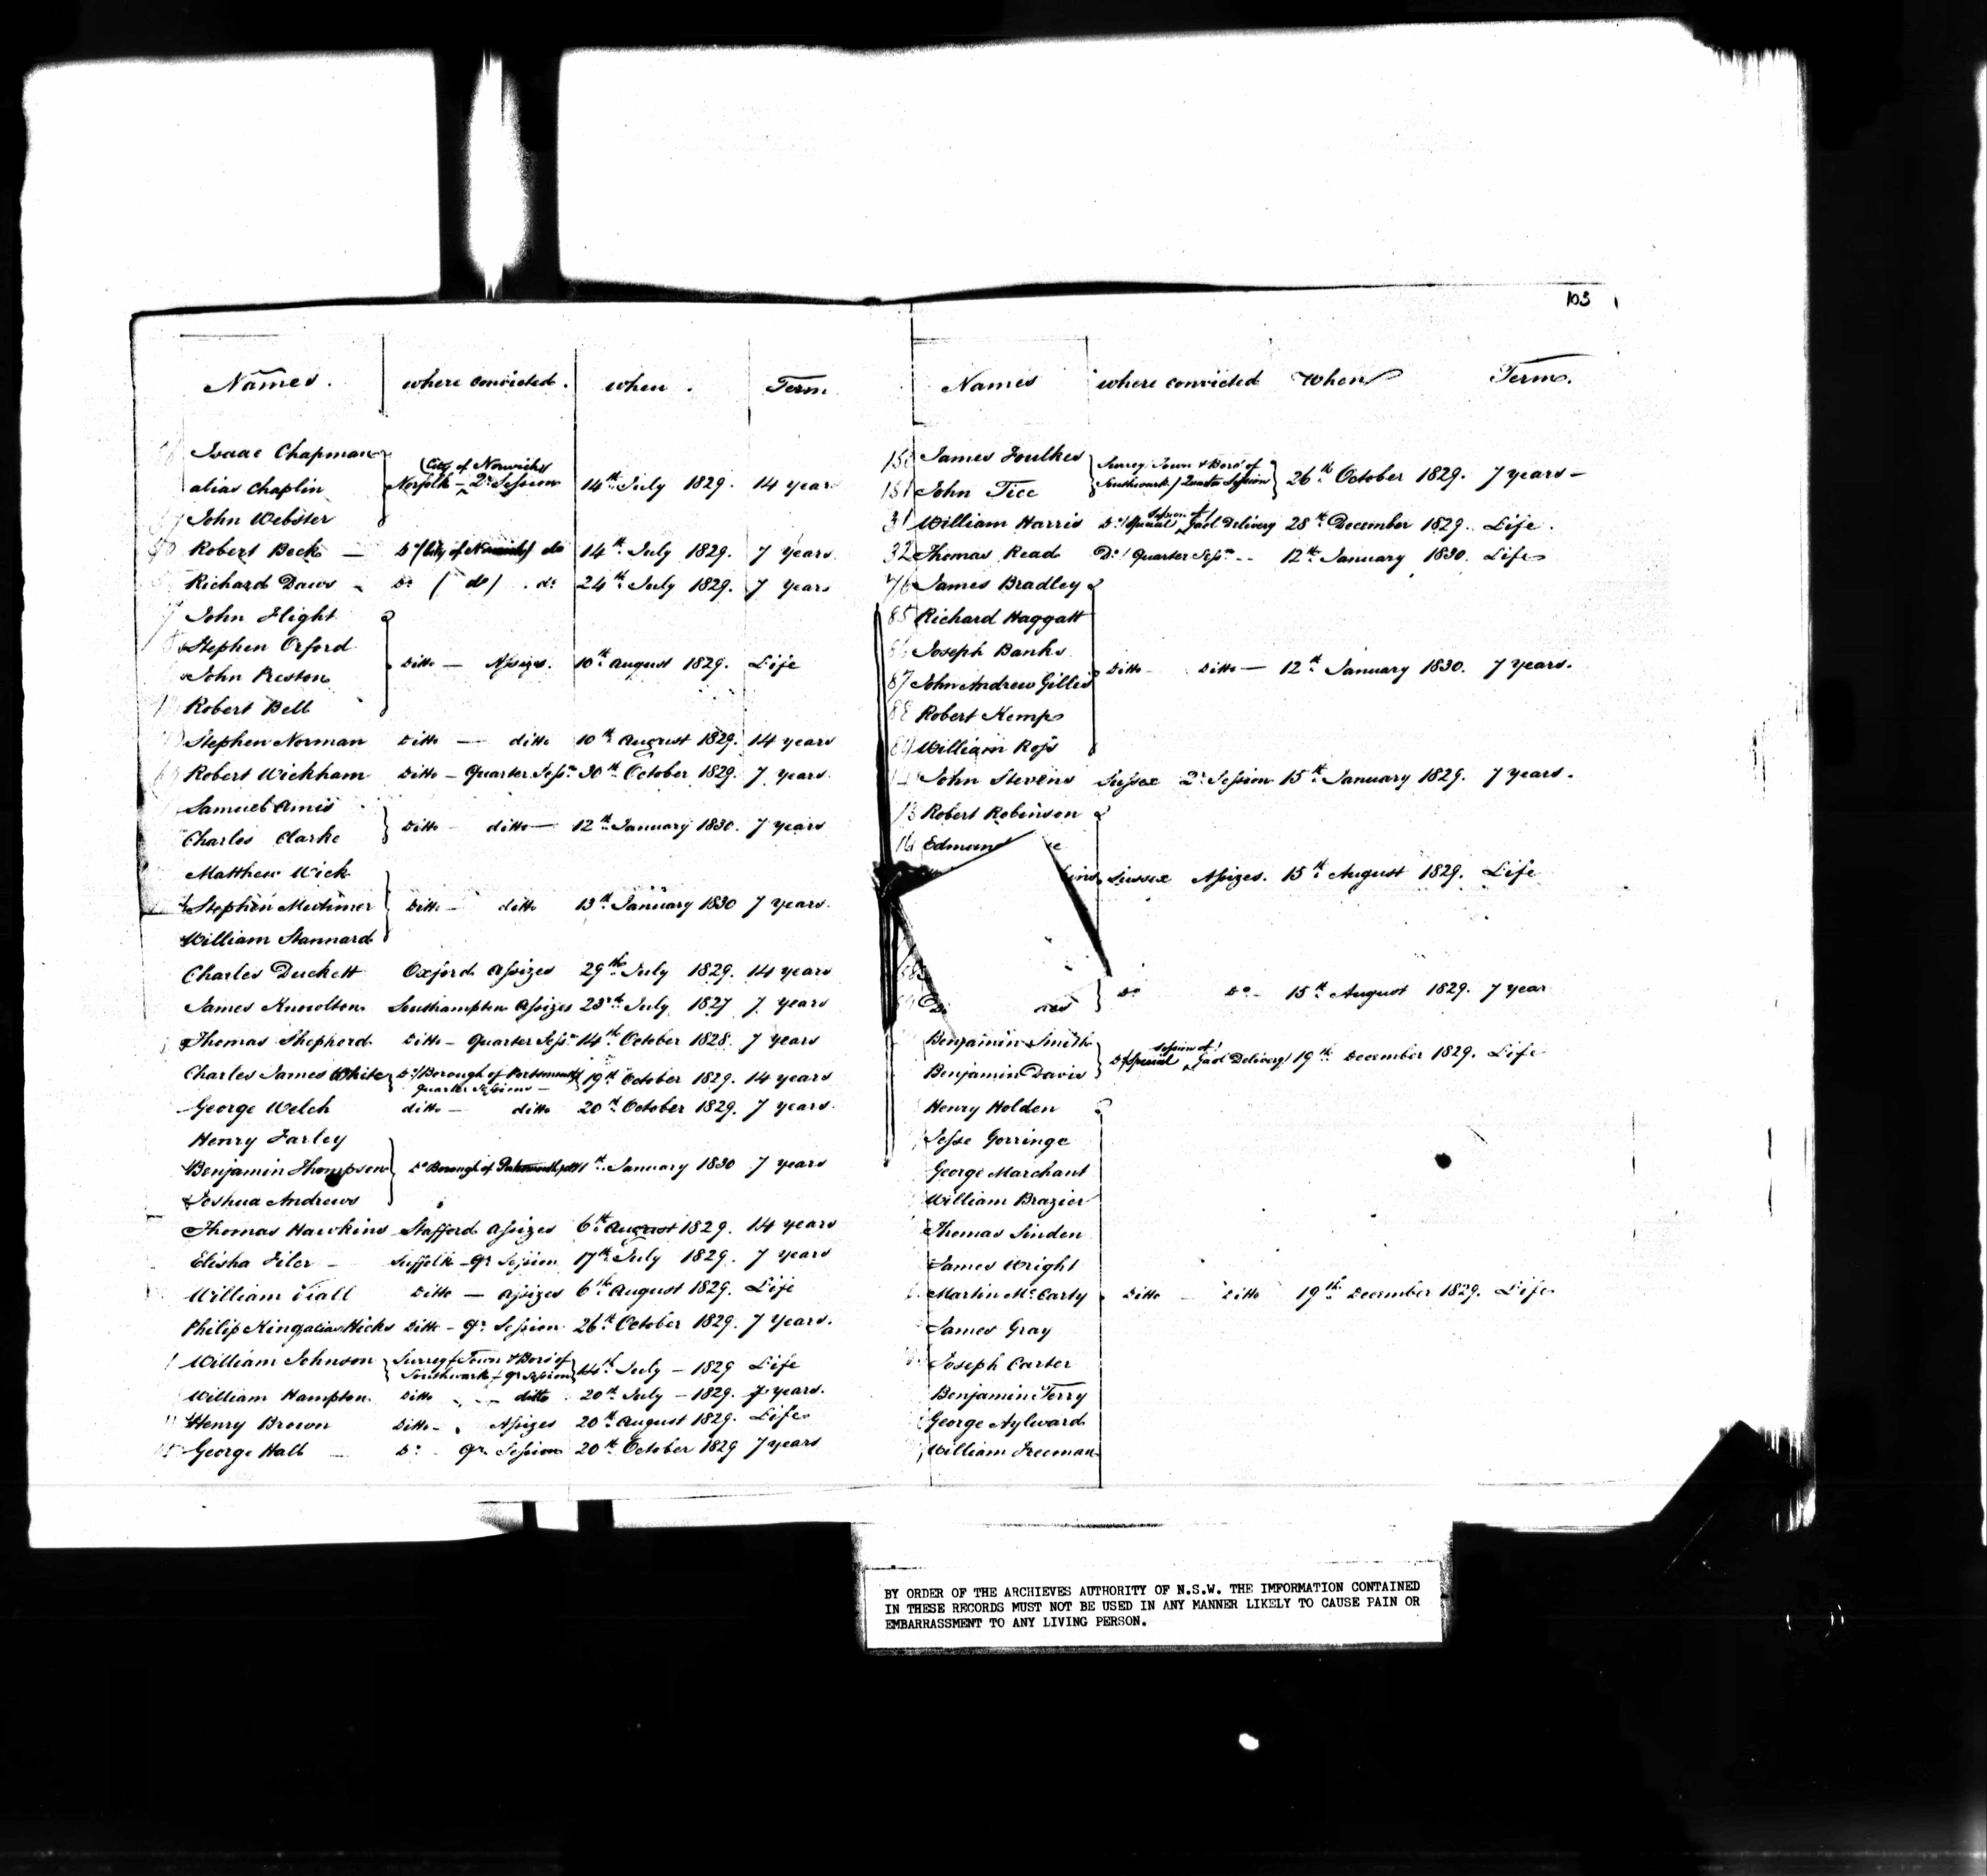 103
Names. where convicted. when. Term
Isaac Chapman
alias Chaplin Norfolk (City of Norwich) Qr Session 14th July 1829. 14 year
John Webster
Robert Beck — Do (City of Norwich) do 14th July 1829. 7 years
Richard Daws - Do (do) do 24th July 1829. 7 years
John Flight
Stephen Orford
John Preston Ditto — Assizes. 10th August 1829. Life
Robert Bell
Stephen Norman Ditto — ditto 10th August 1829. 14 years
Robert Wickham Ditto — Quarter Sessn 30th October 1829. 7 years
Samuel Amis
Charles Clarke Ditto — ditto — 12th January 1830. 7 years
Matthew Wick
Stephen Mortimer Ditto — ditto 13th January 1830 7 years.
William Stannard
Charles Duckett Oxford Assizes 29th July 1829. 14 years
James Knowlton Southampton Assizes 23rd July 1827 7 years
Thomas Shepherd Ditto — Quarter Sessn 14th October 1828. 7 years
Charles James White Do (Borough of Portsmouth) Quarter Sessions — 19th October 1829. 14 years
George Welch ditto — ditto 20th October 1829. 7 years.
Henry Farley
Benjamin Thompson Do Borough of Portsmouth January 1830 7 years
Joshua Andrews
Thomas Hawkins Stafford Assizes 6th August 1829. 14 years
Elisha Filer — Suffolk — Qr Session 17th July 1829. 7 years
William Viall Ditto — Assizes 6th August 1829. Life
Philip King alias Hicks Ditto — Qr Session 26th October 1829. 7 years.
William Johnson Surrey (Town & Boro' of Southwark) Qr Session 14th July — 1829 Life
William Hampton Ditto ditto 20th July — 1829. 7 years.
Henry Brown Ditto — Assizes 20th August 1829. Life
George Hall — Do Qr Session 20th October 1829 7 years
Names where convicted When Term.
150 James Foulkes
151 John Tice Surrey Town & Boro' of Southwark) Quarter Session 26th October 1829. 7 years —
31 William Harris Do (Special Session of Gaol Delivery 28th December 1829. Life.
32 Thomas Read Do Quarter Sessn — 12th January 1830. Life
76 James Bradley
85 Richard Haggatt
86 Joseph Banks
87 John Andrew Gillis Ditto — Ditto — 12th January 1830. 7 years.
88 Robert Kemp
89 William Ross
John Stevens Sussex Qr Session 15th January 1829. 7 years.
13 Robert Robinson
14 Edmund
Sussex Assizes. 15th August 1829. Life
Do Do — 15th August 1829. 7 year
Benjamin Smith
Benjamin Davis Do (Special Session of Gaol Delivery) 19th December 1829. Life
Henry Holden
Jesse Gorringe
George Marchant
William Brazier
Thomas Sinden
James Wright
Martin McCarty Ditto — Ditto 19th December 1829. Life
James Gray
Joseph Carter
Benjamin Terry
George Aylward
William Freeman
BY ORDER OF THE ARCHIEVES AUTHORITY OF N.S.W. THE IMFORMATION CONTAINED
IN THESE RECORDS MUST NOT BE USED IN ANY MANNER LIKELY TO CAUSE PAIN OR
EMBARRASSMENT TO ANY LIVING PERSON.